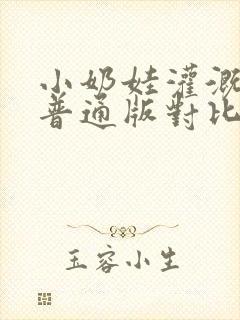 小奶娃灌溉
普通版對比
玉容小生